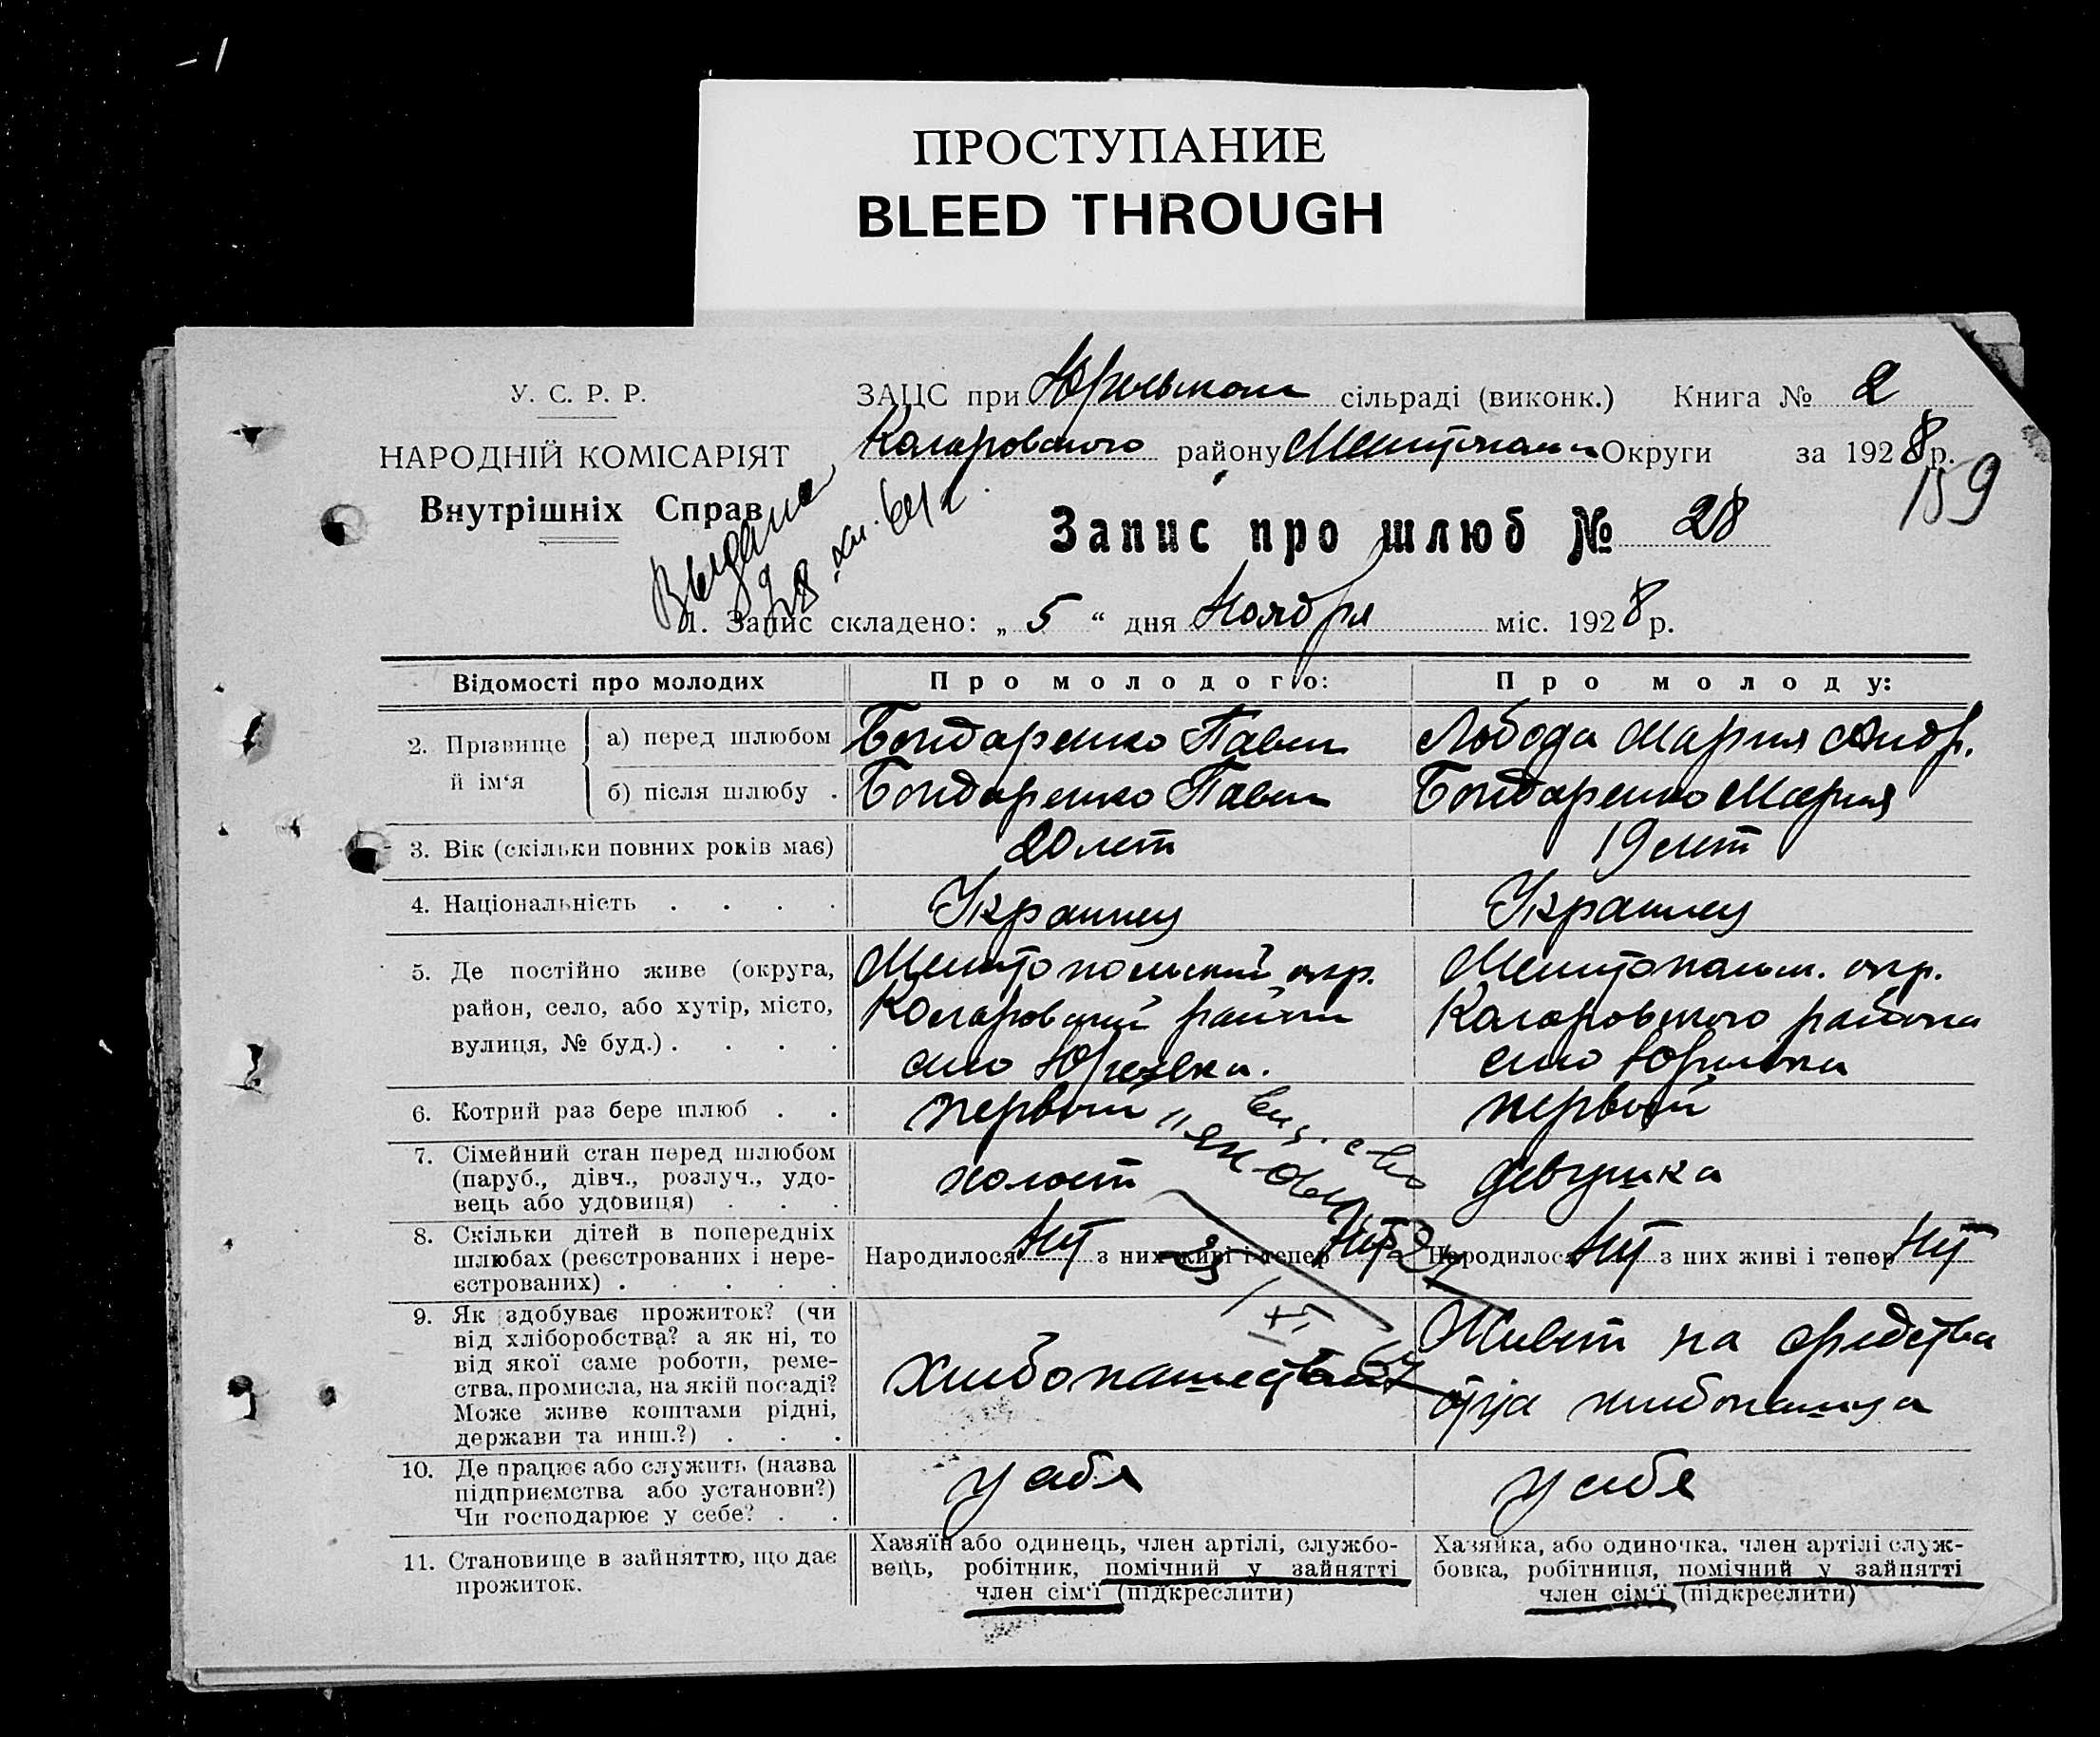 ПРОСТУПАНИЕ
BLEED THROUGH
У. С. Р. Р.
НАРОДНІЙ КОМІСАРІЯТ
Внутрішніх Справ
ЗАЦС при сільраді (виконк.) Книга № 2
Коларовского району Округи за 1928 р.
159
Выдана
Запис про шлюб № 28
1. Запис складено: „ 5 “ дня Ноября міс. 1928 р.
Відомості про молодих
Про молодого:
Про молоду:
2. Прізвище й ім‘я
а) перед шлюбом
Бондаренко Павел
Лобода Мария Андр.
б) після шлюбу .
Бондаренко Павел
Бондаренко Мария
3. Вік (скільки повних років має)
20 лет
19 лет
4. Національність . . . .
Украинец
Украинец
5. Де постійно живе (округа,
район, село, або хутір, місто,
вулиця, № буд.) . . . .
Мелитопольский окр.
Коларовский район
село Юрьевка.
Мелитопольск. окр.
Коларовского района
село Юрьевка
6. Котрий раз бере шлюб . .
первый
первый
7. Сімейний стан перед шлюбом
(паруб., дівч., розлуч., удо-
вець або удовиця) . . .
холост
девушка
8. Скільки дітей в попередніх
шлюбах (реєстрованих і нере-
єстрованих) . . . . .
Народилося нет з них живі і тепер нет
Народилося нет з них живі і тепер нет
9. Як здобуває прожиток? (чи
від хліборобства? а як ні, то
від якої саме роботи, реме-
ства, промисла, на якій посаді?
Може живе коштами рідні,
держави та инш.?) . . .
хлебопашество
Живет на средства
отца хлебопашца
10. Де працює або служить (назва
підприємства або установи?)
Чи господарює у себе? . .
у себя
у себя
11. Становище в зайняттю, що дає
прожиток.
Хазяїн або одинець, член артілі, службо-
вець, робітник, помічний у зайнятті
член сім‘ї (підкреслити)
Хазяйка, або одиночка, член артілі служ-
бовка, робітниця, помічний у зайнятті
член сім‘ї (підкреслити)